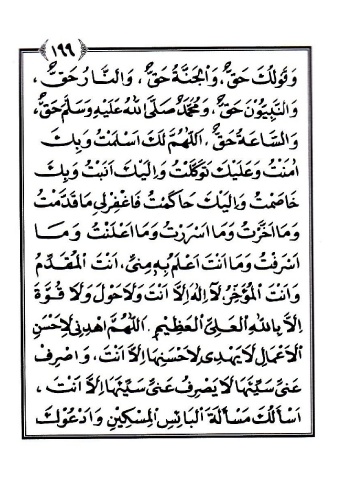 ١٩٩
وَقَوْلُكَ حَقٌّ، وَالْجَنَّةُ حَقٌّ، وَالنَّارُ حَقٌّ،
وَالنَّبِيُّوْنَ حَقٌّ، وَمُحَمَّدٌ صَلَّى اللهُ عَلَيْهِ وَسَلَّمَ حَقٌّ،
وَالسَّاعَةُ حَقٌّ، اَللّٰهُمَّ لَكَ اَسْلَمْتُ وَبِكَ
اٰمَنْتُ وَعَلَيْكَ تَوَكَّلْتُ وَاِلَيْكَ اَنَبْتُ وَبِكَ
خَاصَمْتُ وَاِلَيْكَ حَاكَمْتُ فَاغْفِرْلِي مَا قَدَّمْتُ
وَمَا اَخَّرْتُ وَمَا اَسْرَرْتُ وَمَا اَعْلَنْتُ وَمَا
اَسْرَفْتُ وَمَا اَنْتَ اَعْلَمُ بِهِ مِنِّى، اَنْتَ الْمُقَدِّمُ
وَاَنْتَ الْمُؤَخِّرُ لَآ اِلٰهَ اِلَّا اَنْتَ وَلَا حَوْلَ وَلَا قُوَّةَ
اِلَّا بِاللهِ الْعَلِيِّ الْعَظِيْمِ. اَللّٰهُمَّ اهْدِنِى لِاَحْسَنِ
الْاَعْمَالِ لَا يَهْدِى لِاَحْسَنِهَا اِلَّا اَنْتَ، وَاصْرِفْ
عَنِّى سَيِّئَهَا لَا يَصْرِفُ عَنِّى سَيِّئَهَا اِلَّا اَنْتَ،
اَسْأَلُكَ مَسْأَلَةَ الْبَائِسِ الْمِسْكِيْنِ وَاَدْعُوْكَ